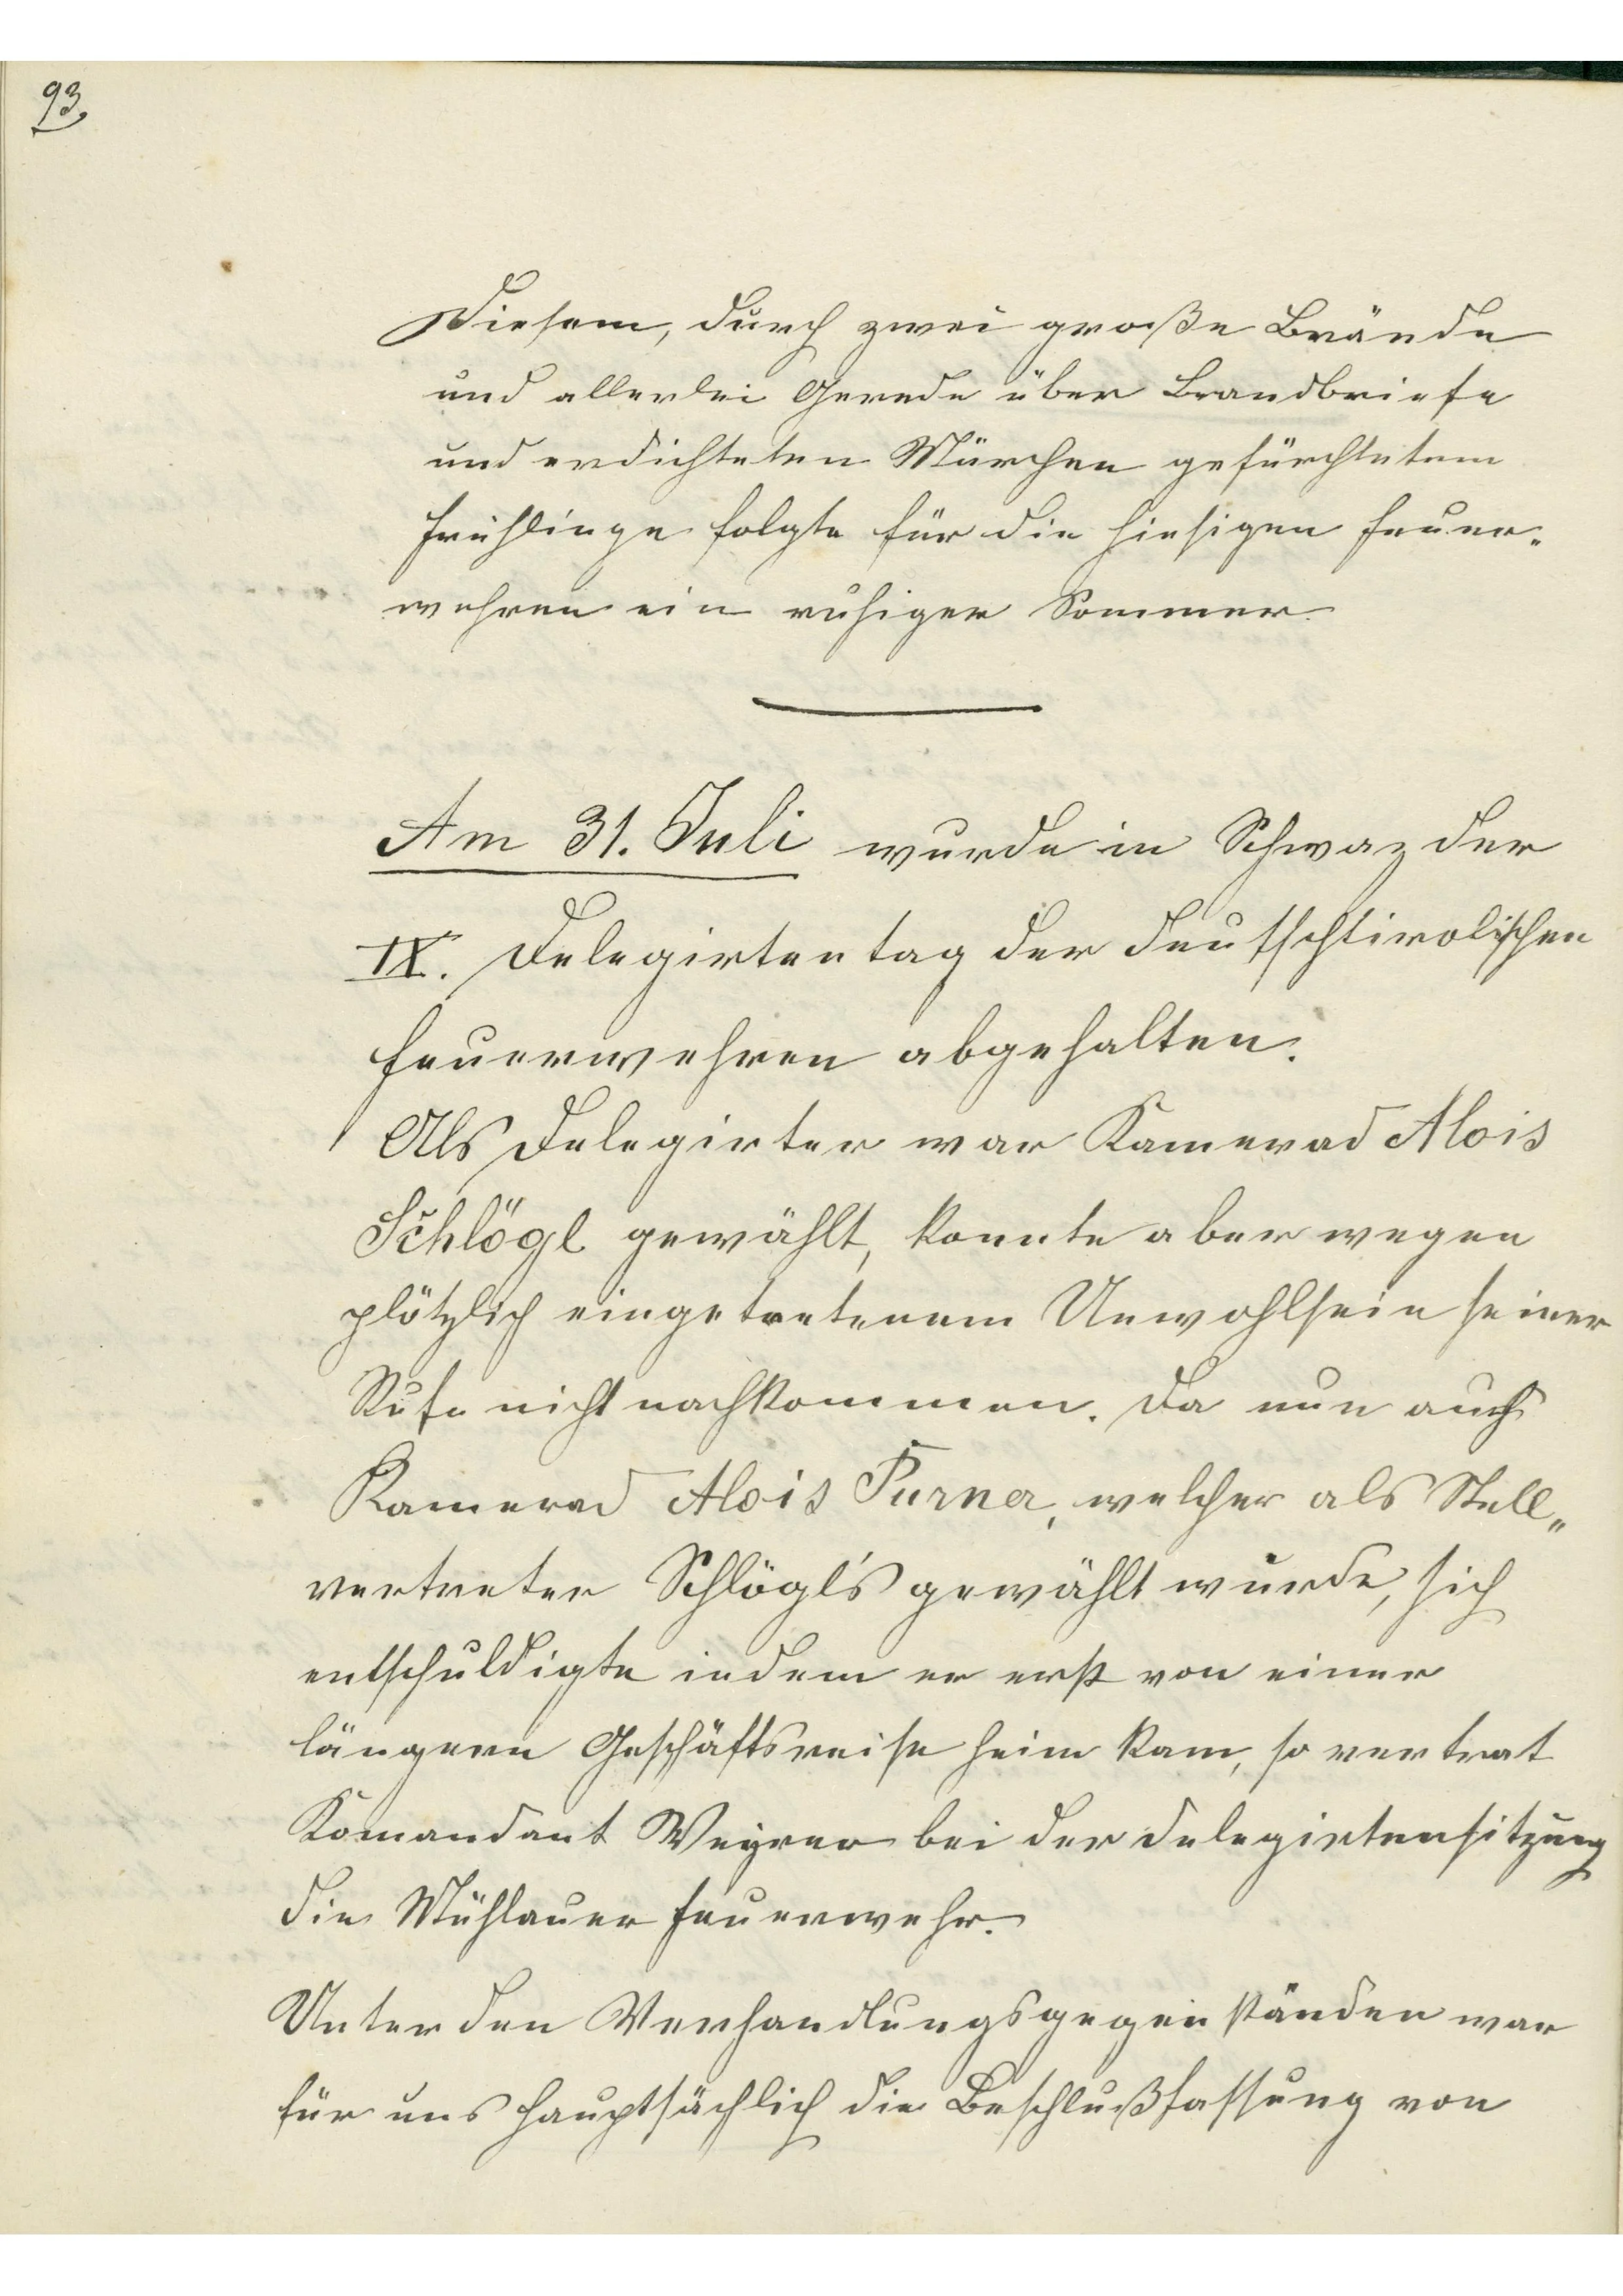 93.
Diesem, durch zwei große Brände
und allerlei Gerede über Brandbriefe
und erdichteten Märchen gefürchtetem
Frühlinge folgte für die hiesigen Feuer-
wehren ein ruhiger Sommer.
Am 31. Juli wurde in Schwaz der
IX. Delegirtentag der deutschtirolischen
Feuerwehren abgehalten.
Als Delegirter war Kamerad Alois
Schlögl gewählt, konnte aber wegen
plötzlich eingetretenem Unwohlsein seiner
Rufe nicht nachkommen. Da nun auch
Kamerad Alois Purner, welcher als Stell„
vertreter Schlögl's gewählt wurde, sich
entschuldigte indem er erst von einer
längern Geschäftsreise heim kam, so vertrat
Komandant Weyrer bei der Delegirtensitzung
die Mühlauer Feuerwehr.
Unter den Verhandlungsgegenständen war
für uns hauptsächlich die Beschlußfassung von